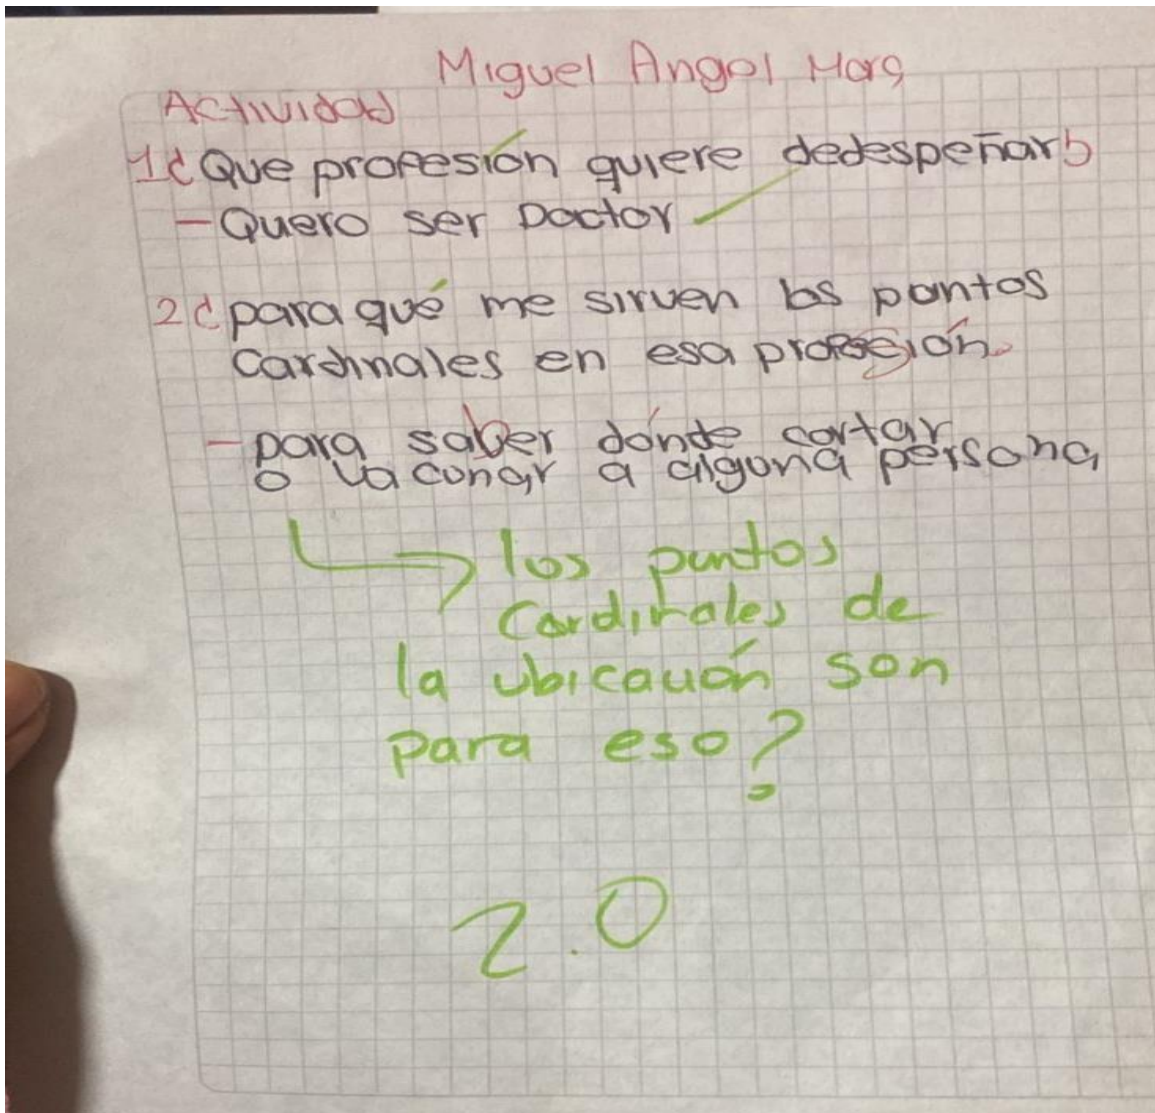 Miguel Angel Mora
Actividad
1¿Que profesión quiere dedespeñar?
- Quero ser Doctor
2¿para qué me sirven los pontos
Cardinales en esa profesión.
- para saber dónde cortar
o vaconar a alguna persona
los puntos
Cardinales de
la ubicación son
para eso?
2.0